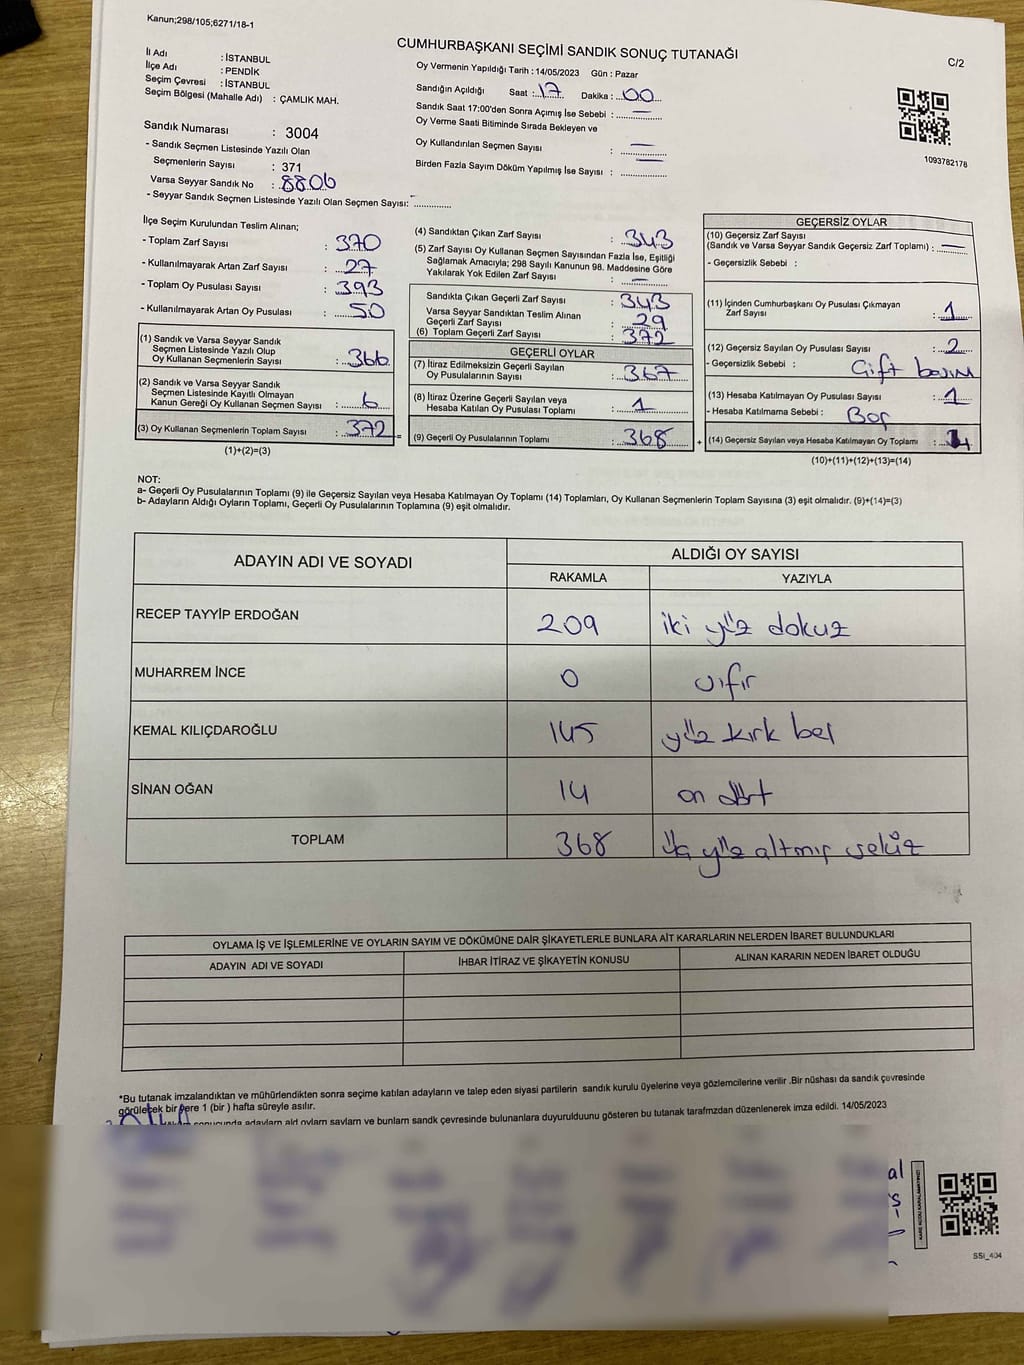 Kanun;298/105;6271/18-1
CUMHURBAŞKANI SEÇİMİ SANDIK SONUÇ TUTANAĞI
C/2
İl Adı : İSTANBUL
İlçe Adı : PENDİK
Seçim Çevresi : İSTANBUL
Seçim Bölgesi (Mahalle Adı) : ÇAMLIK MAH.
Sandık Numarası : 3004
- Sandık Seçmen Listesinde Yazılı Olan
Seçmenlerin Sayısı : 371
Varsa Seyyar Sandık No : 8806
- Seyyar Sandık Seçmen Listesinde Yazılı Olan Seçmen Sayısı: ..............
Oy Vermenin Yapıldığı Tarih : 14/05/2023 Gün : Pazar
Sandığın Açıldığı Saat : 17 Dakika : 00
Sandık Saat 17:00'den Sonra Açımış İse Sebebi : —
Oy Verme Saati Bitiminde Sırada Bekleyen ve
Oy Kullandırılan Seçmen Sayısı : —
Birden Fazla Sayım Döküm Yapılmış İse Sayısı : —
1093782178
İlçe Seçim Kurulundan Teslim Alınan;
- Toplam Zarf Sayısı : 370
- Kullanılmayarak Artan Zarf Sayısı : 27
- Toplam Oy Pusulası Sayısı : 393
- Kullanılmayarak Artan Oy Pusulası : 50
(1) Sandık ve Varsa Seyyar Sandık
Seçmen Listesinde Yazılı Olup
Oy Kullanan Seçmenlerin Sayısı : 366
(2) Sandık ve Varsa Seyyar Sandık
Seçmen Listesinde Kayıtlı Olmayan
Kanun Gereği Oy Kullanan Seçmen Sayısı : 6
(3) Oy Kullanan Seçmenlerin Toplam Sayısı : 372 =
(1)+(2)=(3)
(4) Sandıktan Çıkan Zarf Sayısı : 343
(5) Zarf Sayısı Oy Kullanan Seçmen Sayısından Fazla İse, Eşitliği
Sağlamak Amacıyla; 298 Sayılı Kanunun 98. Maddesine Göre
Yakılarak Yok Edilen Zarf Sayısı : —
Sandıkta Çıkan Geçerli Zarf Sayısı : 343
Varsa Seyyar Sandıktan Teslim Alınan
Geçerli Zarf Sayısı : 29
(6) Toplam Geçerli Zarf Sayısı : 372
GEÇERLİ OYLAR
(7) İtiraz Edilmeksizin Geçerli Sayılan
Oy Pusulalarının Sayısı : 367
(8) İtiraz Üzerine Geçerli Sayılan veya
Hesaba Katılan Oy Pusulası Toplamı : 1
(9) Geçerli Oy Pusulalarının Toplamı : 368 +
GEÇERSİZ OYLAR
(10) Geçersiz Zarf Sayısı
(Sandık ve Varsa Seyyar Sandık Geçersiz Zarf Toplamı) : —
- Geçersizlik Sebebi :
(11) İçinden Cumhurbaşkanı Oy Pusulası Çıkmayan
Zarf Sayısı : 1
(12) Geçersiz Sayılan Oy Pusulası Sayısı : 2
- Geçersizlik Sebebi : Çift basım
(13) Hesaba Katılmayan Oy Pusulası Sayısı : 1
- Hesaba Katılmama Sebebi : Boş
(14) Geçersiz Sayılan veya Hesaba Katılmayan Oy Toplamı : 4
(10)+(11)+(12)+(13)=(14)
NOT:
a- Geçerli Oy Pusulalarının Toplamı (9) ile Geçersiz Sayılan veya Hesaba Katılmayan Oy Toplamı (14) Toplamları, Oy Kullanan Seçmenlerin Toplam Sayısına (3) eşit olmalıdır. (9)+(14)=(3)
b- Adayların Aldığı Oyların Toplamı, Geçerli Oy Pusulalarının Toplamına (9) eşit olmalıdır.
ADAYIN ADI VE SOYADI
ALDIĞI OY SAYISI
RAKAMLA YAZIYLA
RECEP TAYYİP ERDOĞAN 209 iki yüz dokuz
MUHARREM İNCE 0 sıfır
KEMAL KILIÇDAROĞLU 145 yüz kırk beş
SİNAN OĞAN 14 on dört
TOPLAM 368 üç yüz altmış sekiz
OYLAMA İŞ VE İŞLEMLERİNE VE OYLARIN SAYIM VE DÖKÜMÜNE DAİR ŞİKAYETLERLE BUNLARA AİT KARARLARIN NELERDEN İBARET BULUNDUKLARI
ADAYIN ADI VE SOYADI
İHBAR İTİRAZ VE ŞİKAYETİN KONUSU
ALINAN KARARIN NEDEN İBARET OLDUĞU
*Bu tutanak imzalandıktan ve mühürlendikten sonra seçime katılan adayların ve talep eden siyasi partilerin sandık kurulu üyelerine veya gözlemcilerine verilir .Bir nüshası da sandık çevresinde
görülecek bir yere 1 (bir ) hafta süreyle asılır.
sonucunda adayların ald oyların sayların ve bunların sandk çevresinde bulunanlara duyurulduunu gösteren bu tutanak tarafmzdan düzenlenerek imza edildi. 14/05/2023
KARE KODU KARALAMAYINIZ!
SSI_404